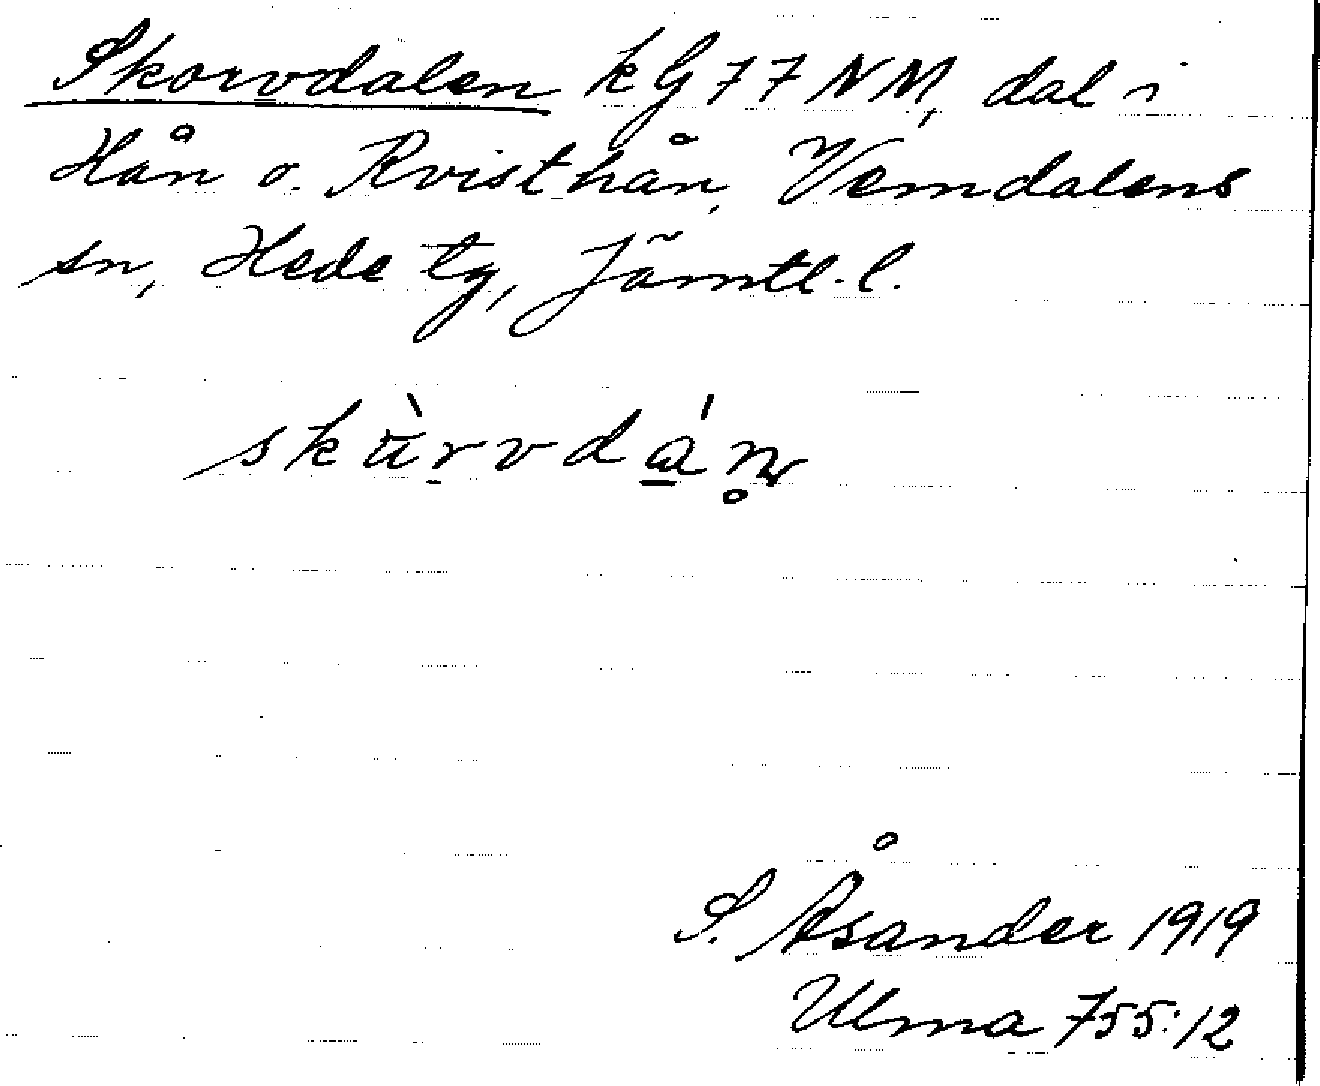 Skorvdalen kG 77 NM, dal i
Hån o. Rvisthån, Vemdalens
sn, Hede tg, Jämtl. l.
skùrvdán̥
S. Åsander 1919
Ulma 755:12